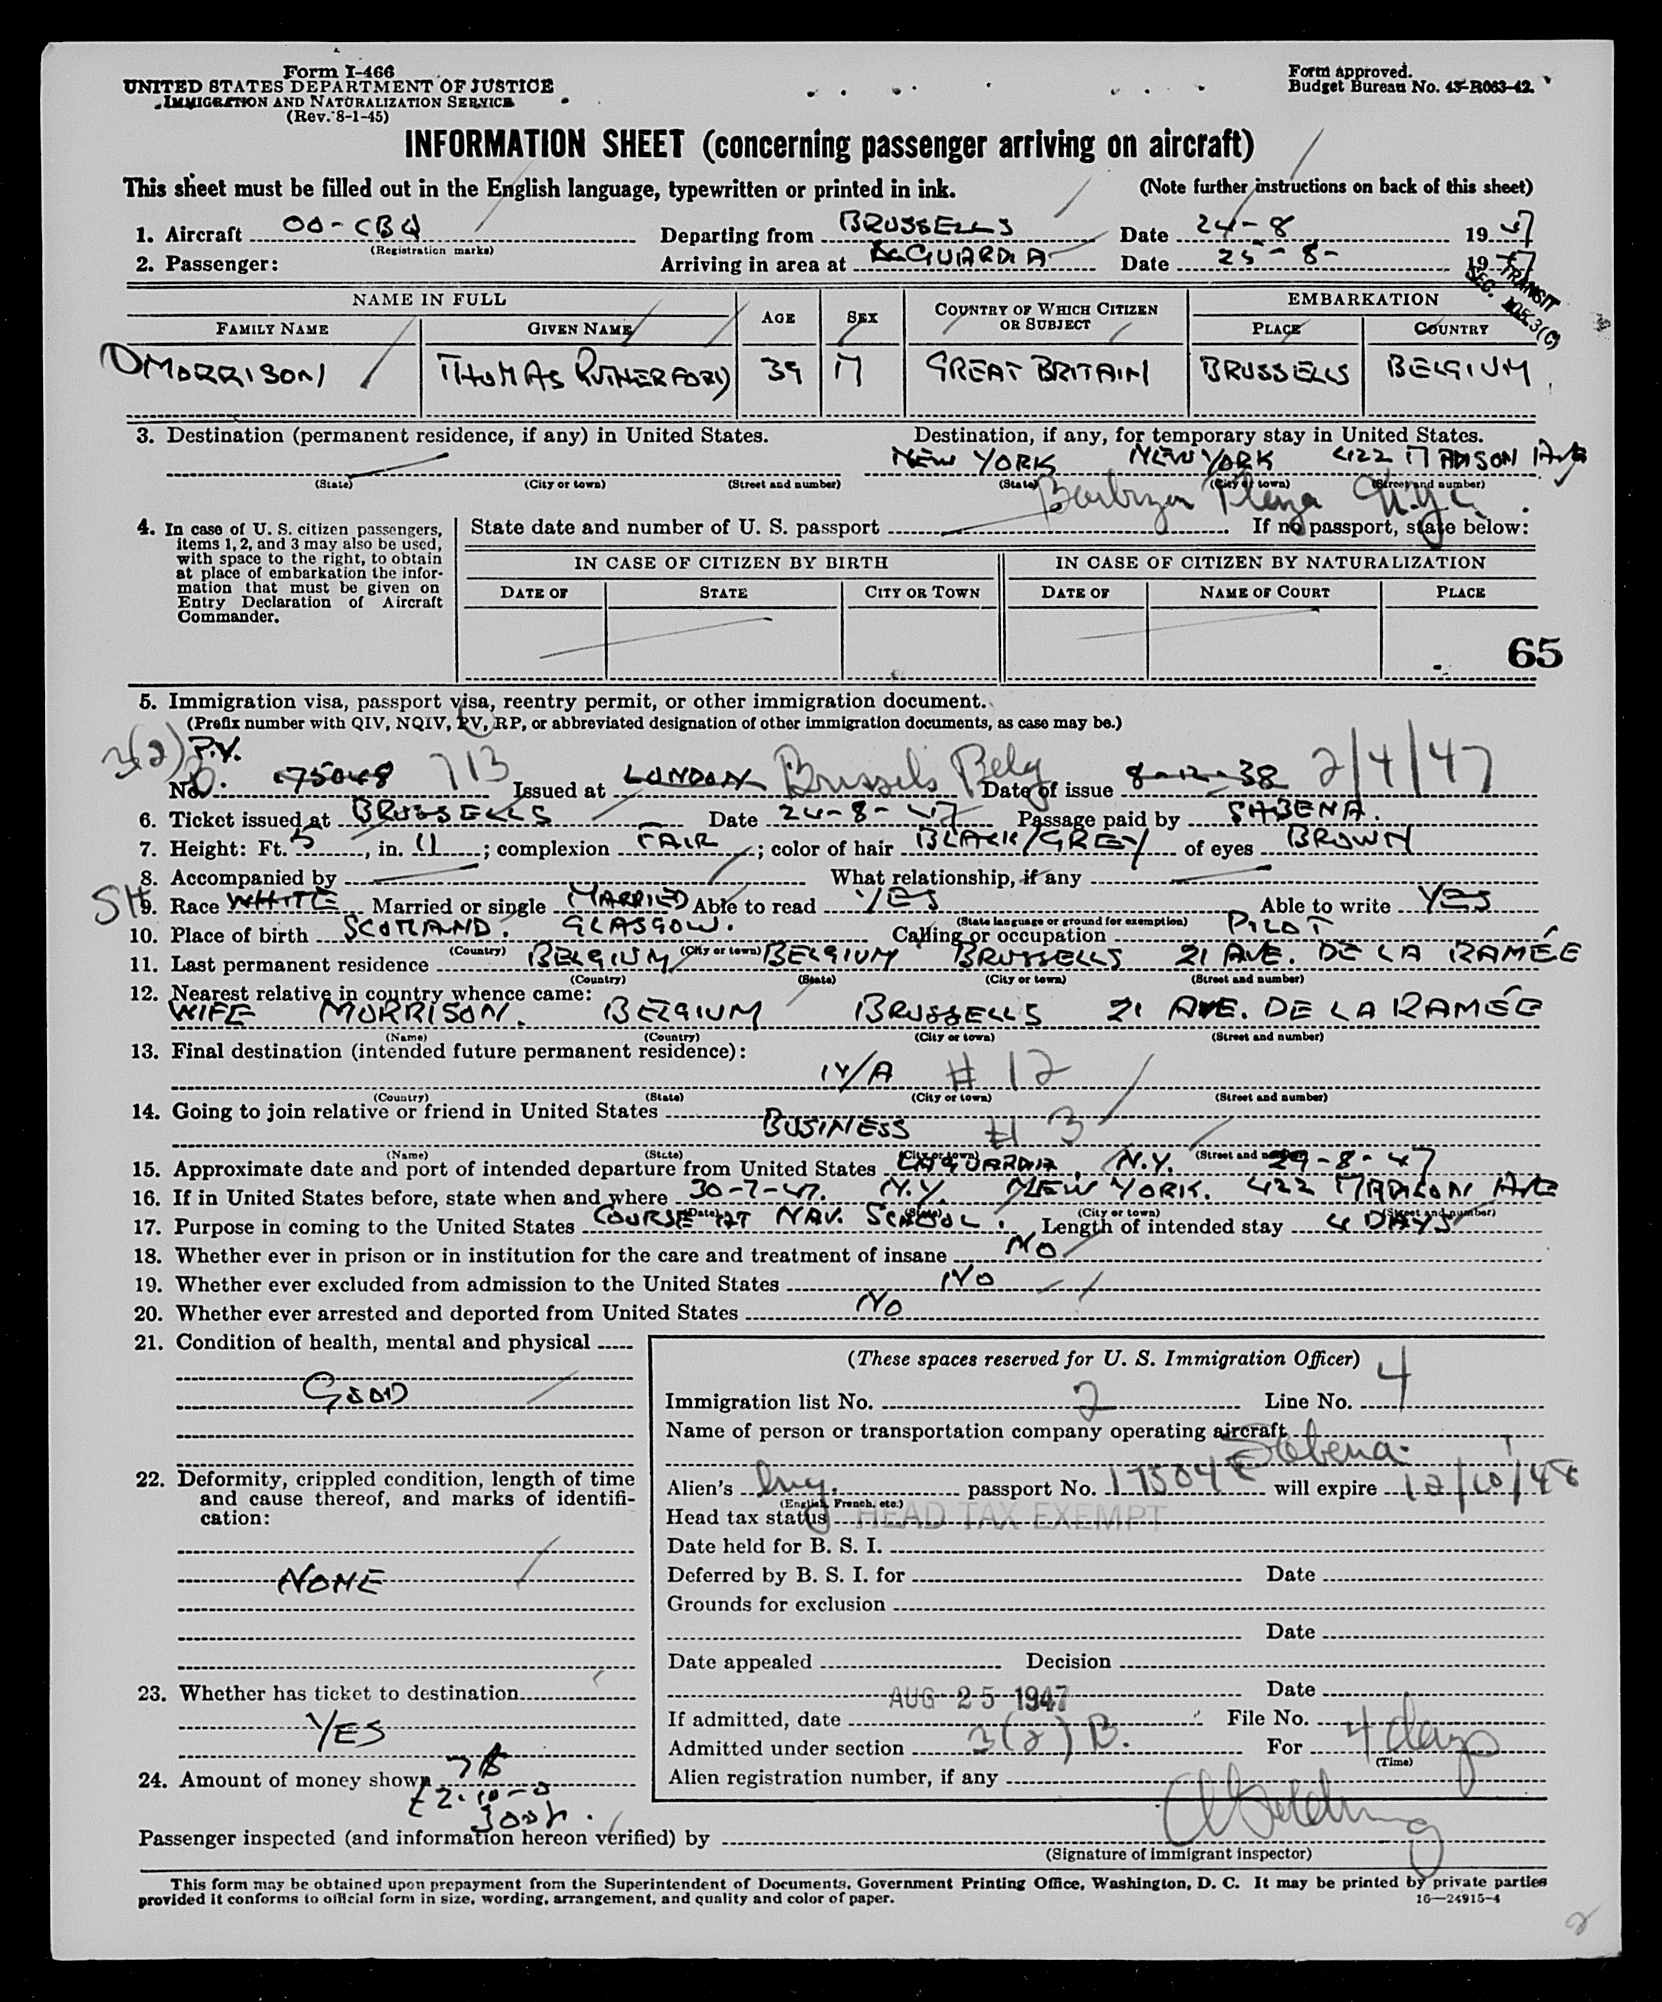 Form I-466
UNITED STATES DEPARTMENT OF JUSTICE
IMMIGRATION AND NATURALIZATION SERVICE
(Rev. 8-1-45)
Form approved.
Budget Bureau No. 43-R063-42.
INFORMATION SHEET (concerning passenger arriving on aircraft)
This sheet must be filled out in the English language, typewritten or printed in ink. (Note further instructions on back of this sheet)
1. Aircraft OO-CBQ Departing from BRUSSELLS Date 24-8 1947
(Registration marks)
2. Passenger: Arriving in area at LAGUARDIA Date 25-8- 1947
TRANSIT
SEC.
NAME IN FULL AGE SEX COUNTRY OF WHICH CITIZEN OR SUBJECT EMBARKATION
FAMILY NAME GIVEN NAME PLACE COUNTRY
MORRISON THOMAS RUTHERFORD 39 M GREAT BRITAIN BRUSSELLS BELGIUM
3. Destination (permanent residence, if any) in United States. Destination, if any, for temporary stay in United States.
NEW YORK NEW YORK 422 MADISON AVE
(State) (City or town) (Street and number) (State) (City or town) (Street and number)
Barbizon Plaza N.Y.C.
4. In case of U. S. citizen passengers, items 1, 2, and 3 may also be used, with space to the right, to obtain at place of embarkation the information that must be given on Entry Declaration of Aircraft Commander.
State date and number of U. S. passport If no passport, state below:
IN CASE OF CITIZEN BY BIRTH IN CASE OF CITIZEN BY NATURALIZATION
DATE OF STATE CITY OR TOWN DATE OF NAME OF COURT PLACE
65
5. Immigration visa, passport visa, reentry permit, or other immigration document.
(Prefix number with QIV, NQIV, PV, RP, or abbreviated designation of other immigration documents, as case may be.)
3(2) P.V.
No. 175048 713 Issued at LONDON Brussels Belg Date of issue 8-12-38 2/4/47
6. Ticket issued at BRUSSELLS Date 24-8-47 Passage paid by SABENA.
7. Height: Ft. 5, in. 11; complexion FAIR; color of hair BLACK/GREY of eyes BROWN
8. Accompanied by What relationship, if any
9. Race WHITE Married or single MARRIED Able to read YES Able to write YES
(State language or ground for exemption)
10. Place of birth SCOTLAND. GLASGOW. Calling or occupation PILOT
(Country) (City or town)
11. Last permanent residence BELGIUM BELGIUM BRUSSELLS 21 AVE. DE LA RAMÉE
(Country) (State) (City or town) (Street and number)
12. Nearest relative in country whence came:
WIFE MORRISON. BELGIUM BRUSSELLS 21 AVE. DE LA RAMÉE
(Name) (Country) (City or town) (Street and number)
13. Final destination (intended future permanent residence):
N/A # 12
(Country) (State) (City or town) (Street and number)
14. Going to join relative or friend in United States
BUSINESS # 3
(Name) (State) (City or town) (Street and number)
15. Approximate date and port of intended departure from United States LAGUARDIA, N.Y. 29-8-47
16. If in United States before, state when and where 30-7-47. N.Y. NEW YORK. 422 MADISON AVE
(Date) (State) (City or town) (Street and number)
17. Purpose in coming to the United States COURSE AT NAV. SCHOOL. Length of intended stay 4 DAYS
18. Whether ever in prison or in institution for the care and treatment of insane NO
19. Whether ever excluded from admission to the United States NO
20. Whether ever arrested and deported from United States NO
21. Condition of health, mental and physical
GOOD
22. Deformity, crippled condition, length of time and cause thereof, and marks of identification:
NONE
23. Whether has ticket to destination
YES
24. Amount of money shown 7$
£2-10-0
300fr.
(These spaces reserved for U. S. Immigration Officer)
Immigration list No. 2 Line No. 4
Name of person or transportation company operating aircraft
Sabena
Alien's Eng. passport No. 175048 will expire 12/10/48
(English, French, etc.)
Head tax status HEAD TAX EXEMPT
Date held for B. S. I.
Deferred by B. S. I. for Date
Grounds for exclusion
Date
Date appealed Decision
AUG 25 1947 Date
If admitted, date File No.
Admitted under section 3(2) B. For 4 days
(Time)
Alien registration number, if any
Passenger inspected (and information hereon verified) by
(Signature of immigrant inspector)
This form may be obtained upon prepayment from the Superintendent of Documents, Government Printing Office, Washington, D. C. It may be printed by private parties
provided it conforms to official form in size, wording, arrangement, and quality and color of paper. 16—24915-4
2